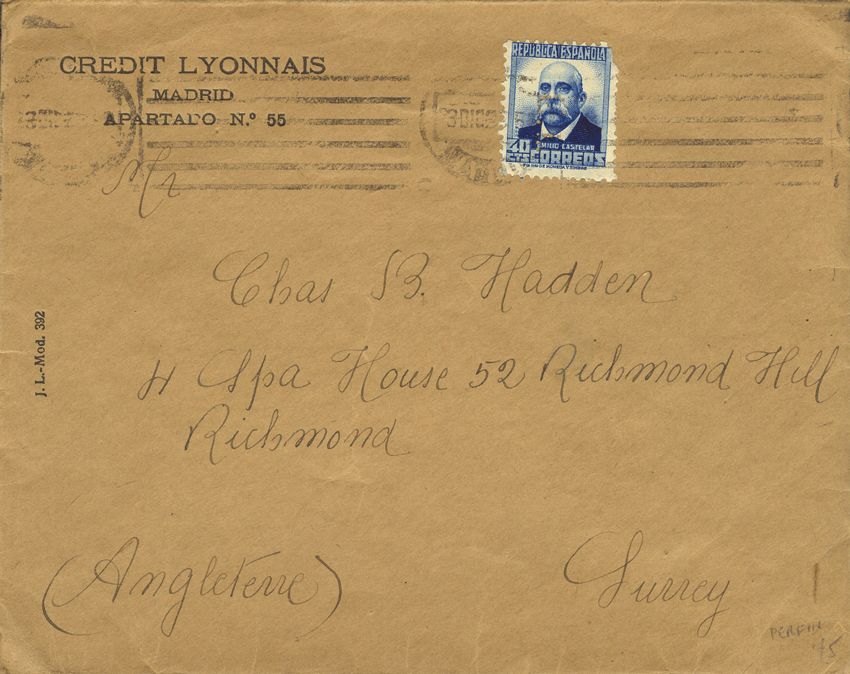 CREDIT LYONNAIS
MADRID
APARTADO N.º 55
REPÚBLICA ESPAÑOLA
EMILIO CASTELAR
40 CTS CORREOS
Mr
Chas B. Hadden
4 Spa House 52 Richmond Hill
Richmond
(Angleterre)
Surrey
J. L.-Mod. 392
PERFIN